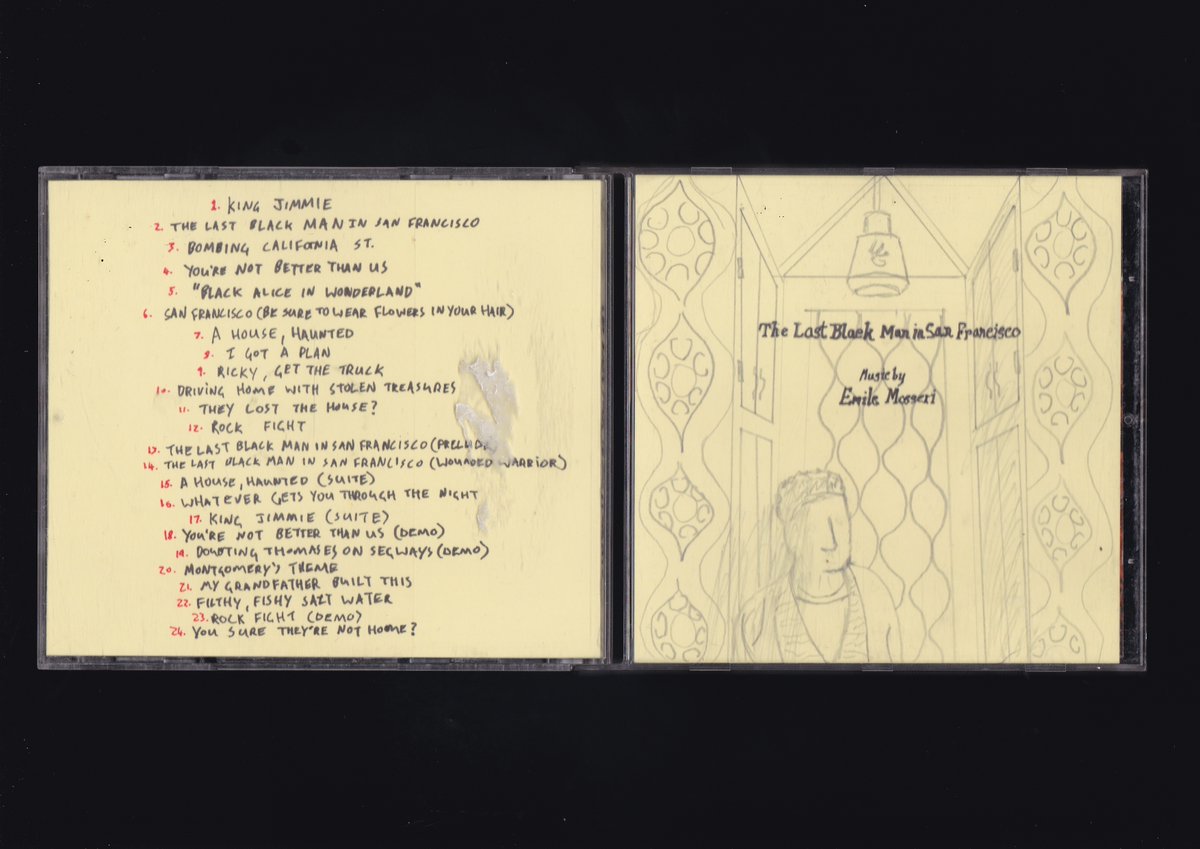 1. KING JIMMIE
2. THE LAST BLACK MAN IN SAN FRANCISCO
3. BOMBING CALIFORNIA ST.
4. YOU'RE NOT BETTER THAN US
5. "BLACK ALICE IN WONDERLAND"
6. SAN FRANCISCO (BE SURE TO WEAR FLOWERS IN YOUR HAIR)
7. A HOUSE, HAUNTED
8. I GOT A PLAN
9. RICKY, GET THE TRUCK
10. DRIVING HOME WITH STOLEN TREASURES
11. THEY LOST THE HOUSE?
12. ROCK FIGHT
13. THE LAST BLACK MAN IN SAN FRANCISCO (PRELUDE
14. THE LAST BLACK MAN IN SAN FRANCISCO (WOUNDED WARRIOR)
15. A HOUSE, HAUNTED (SUITE)
16. WHATEVER GETS YOU THROUGH THE NIGHT
17. KING JIMMIE (SUITE)
18. YOU'RE NOT BETTER THAN US (DEMO)
19. DOUBTING THOMASES ON SEGWAYS (DEMO)
20. MONTGOMERY'S THEME
21. MY GRANDFATHER BUILT THIS
22. FILTHY, FISHY SALT WATER
23. ROCK FIGHT (DEMO)
24. YOU SURE THEY'RE NOT HOME?
The Last Black Man in San Francisco
Music by
Emile Mosseri